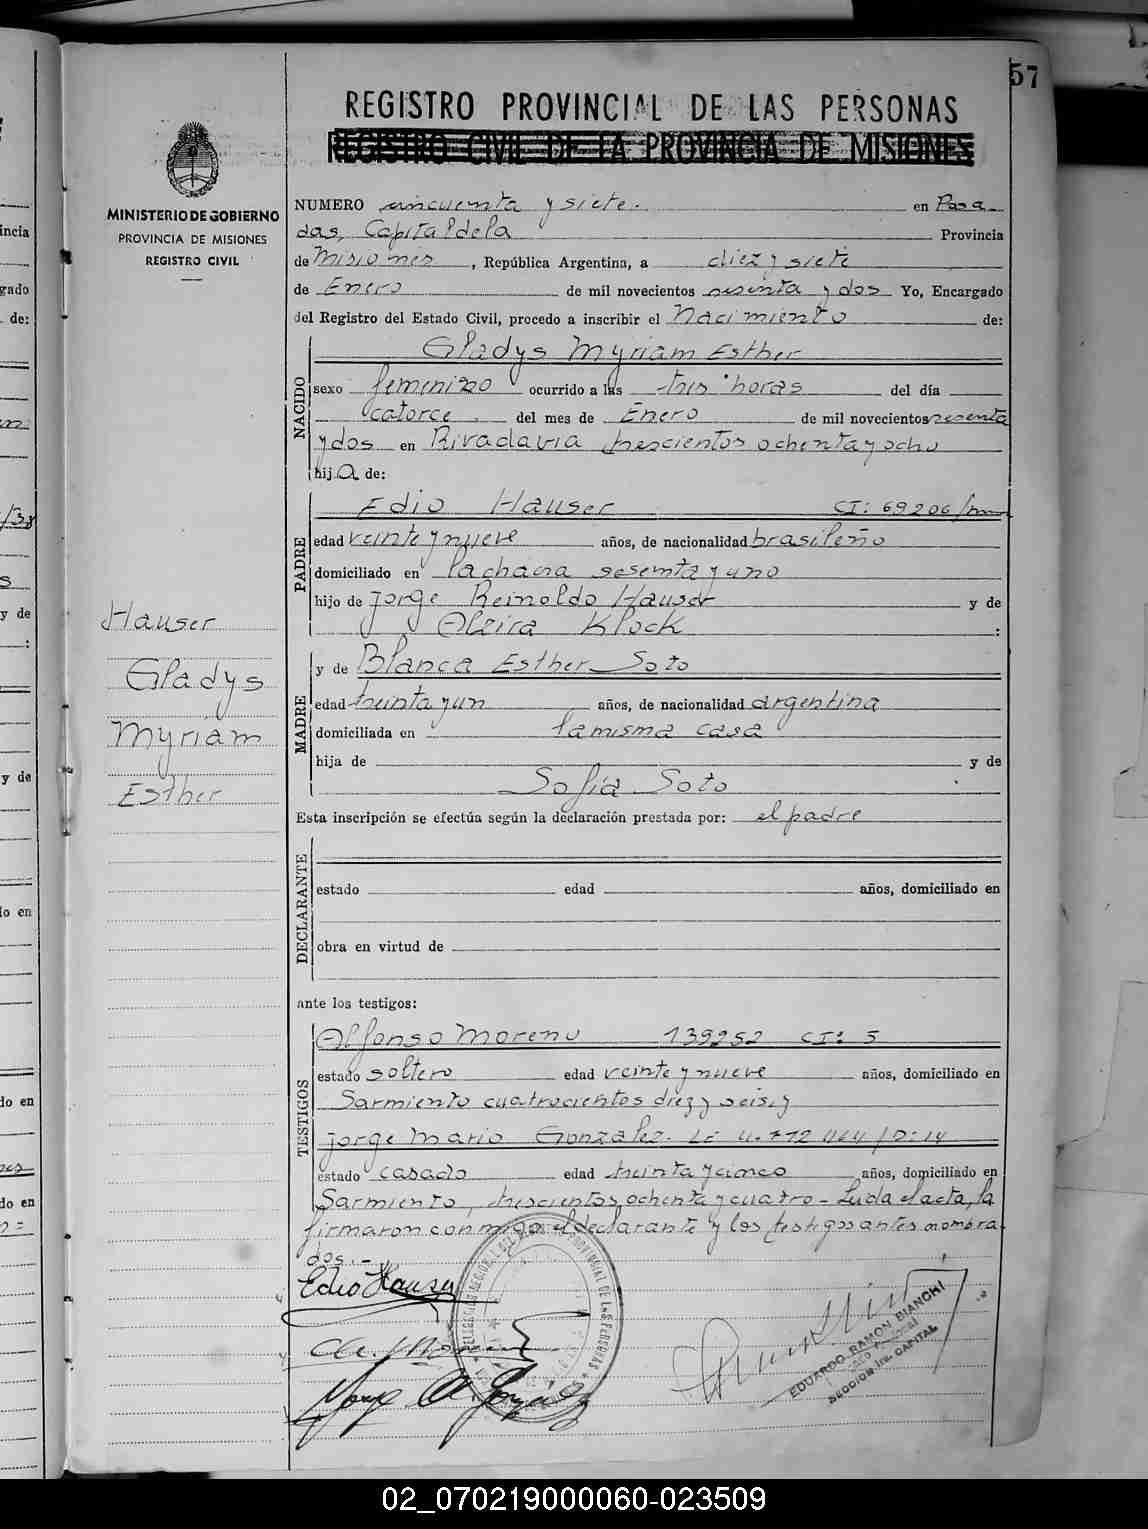 57
REGISTRO PROVINCIAL DE LAS PERSONAS
REGISTRO CIVIL DE LA PROVINCIA DE MISIONES
MINISTERIO DE GOBIERNO
PROVINCIA DE MISIONES
REGISTRO CIVIL
Hauser
Gladys
Myriam
Esther
NUMERO cincuenta y siete. en Posa
das, Capital de la Provincia
de Misiones, República Argentina, a diez y siete
de Enero de mil novecientos sesenta y dos Yo, Encargado
del Registro del Estado Civil, procedo a inscribir el Nacimiento de:
NACIDO
Gladys Myriam Esther
sexo femenino ocurrido a las tres horas del día
catorce. del mes de Enero de mil novecientos sesenta
y dos en Rivadavia trescientos ochenta y ocho
hija de:
PADRE
Edio Hauser CI: 69206/
edad veinte y nueve años, de nacionalidad brasileño
domiciliado en la chacra sesenta y uno
hijo de Jorge Reinoldo Hauser y de
Alzira Klock :
MADRE
y de Blanca Esther Soto
edad treinta y un años, de nacionalidad argentina
domiciliada en la misma casa
hija de y de
Sofía Soto
Esta inscripción se efectúa según la declaración prestada por: el padre
DECLARANTE
estado edad años, domiciliado en
obra en virtud de
ante los testigos:
TESTIGOS
Alfonso Moreno 139252 CI: 5
estado soltero edad veinte y nueve años, domiciliado en
Sarmiento cuatrocientos diez y seis, y
Jorge Mario Gonzalez. LE 4.772 464/D:14
estado casado edad treinta y cinco años, domiciliado en
Sarmiento, trescientos ochenta y cuatro - Leida el acta, la
firmaron conmigo, el declarante y los testigos antes nombra
dos. -
Edio Hauser
EDUARDO RAMON BIANCHI
SECCION 1ra. CAPITAL
02_070219000060-023509